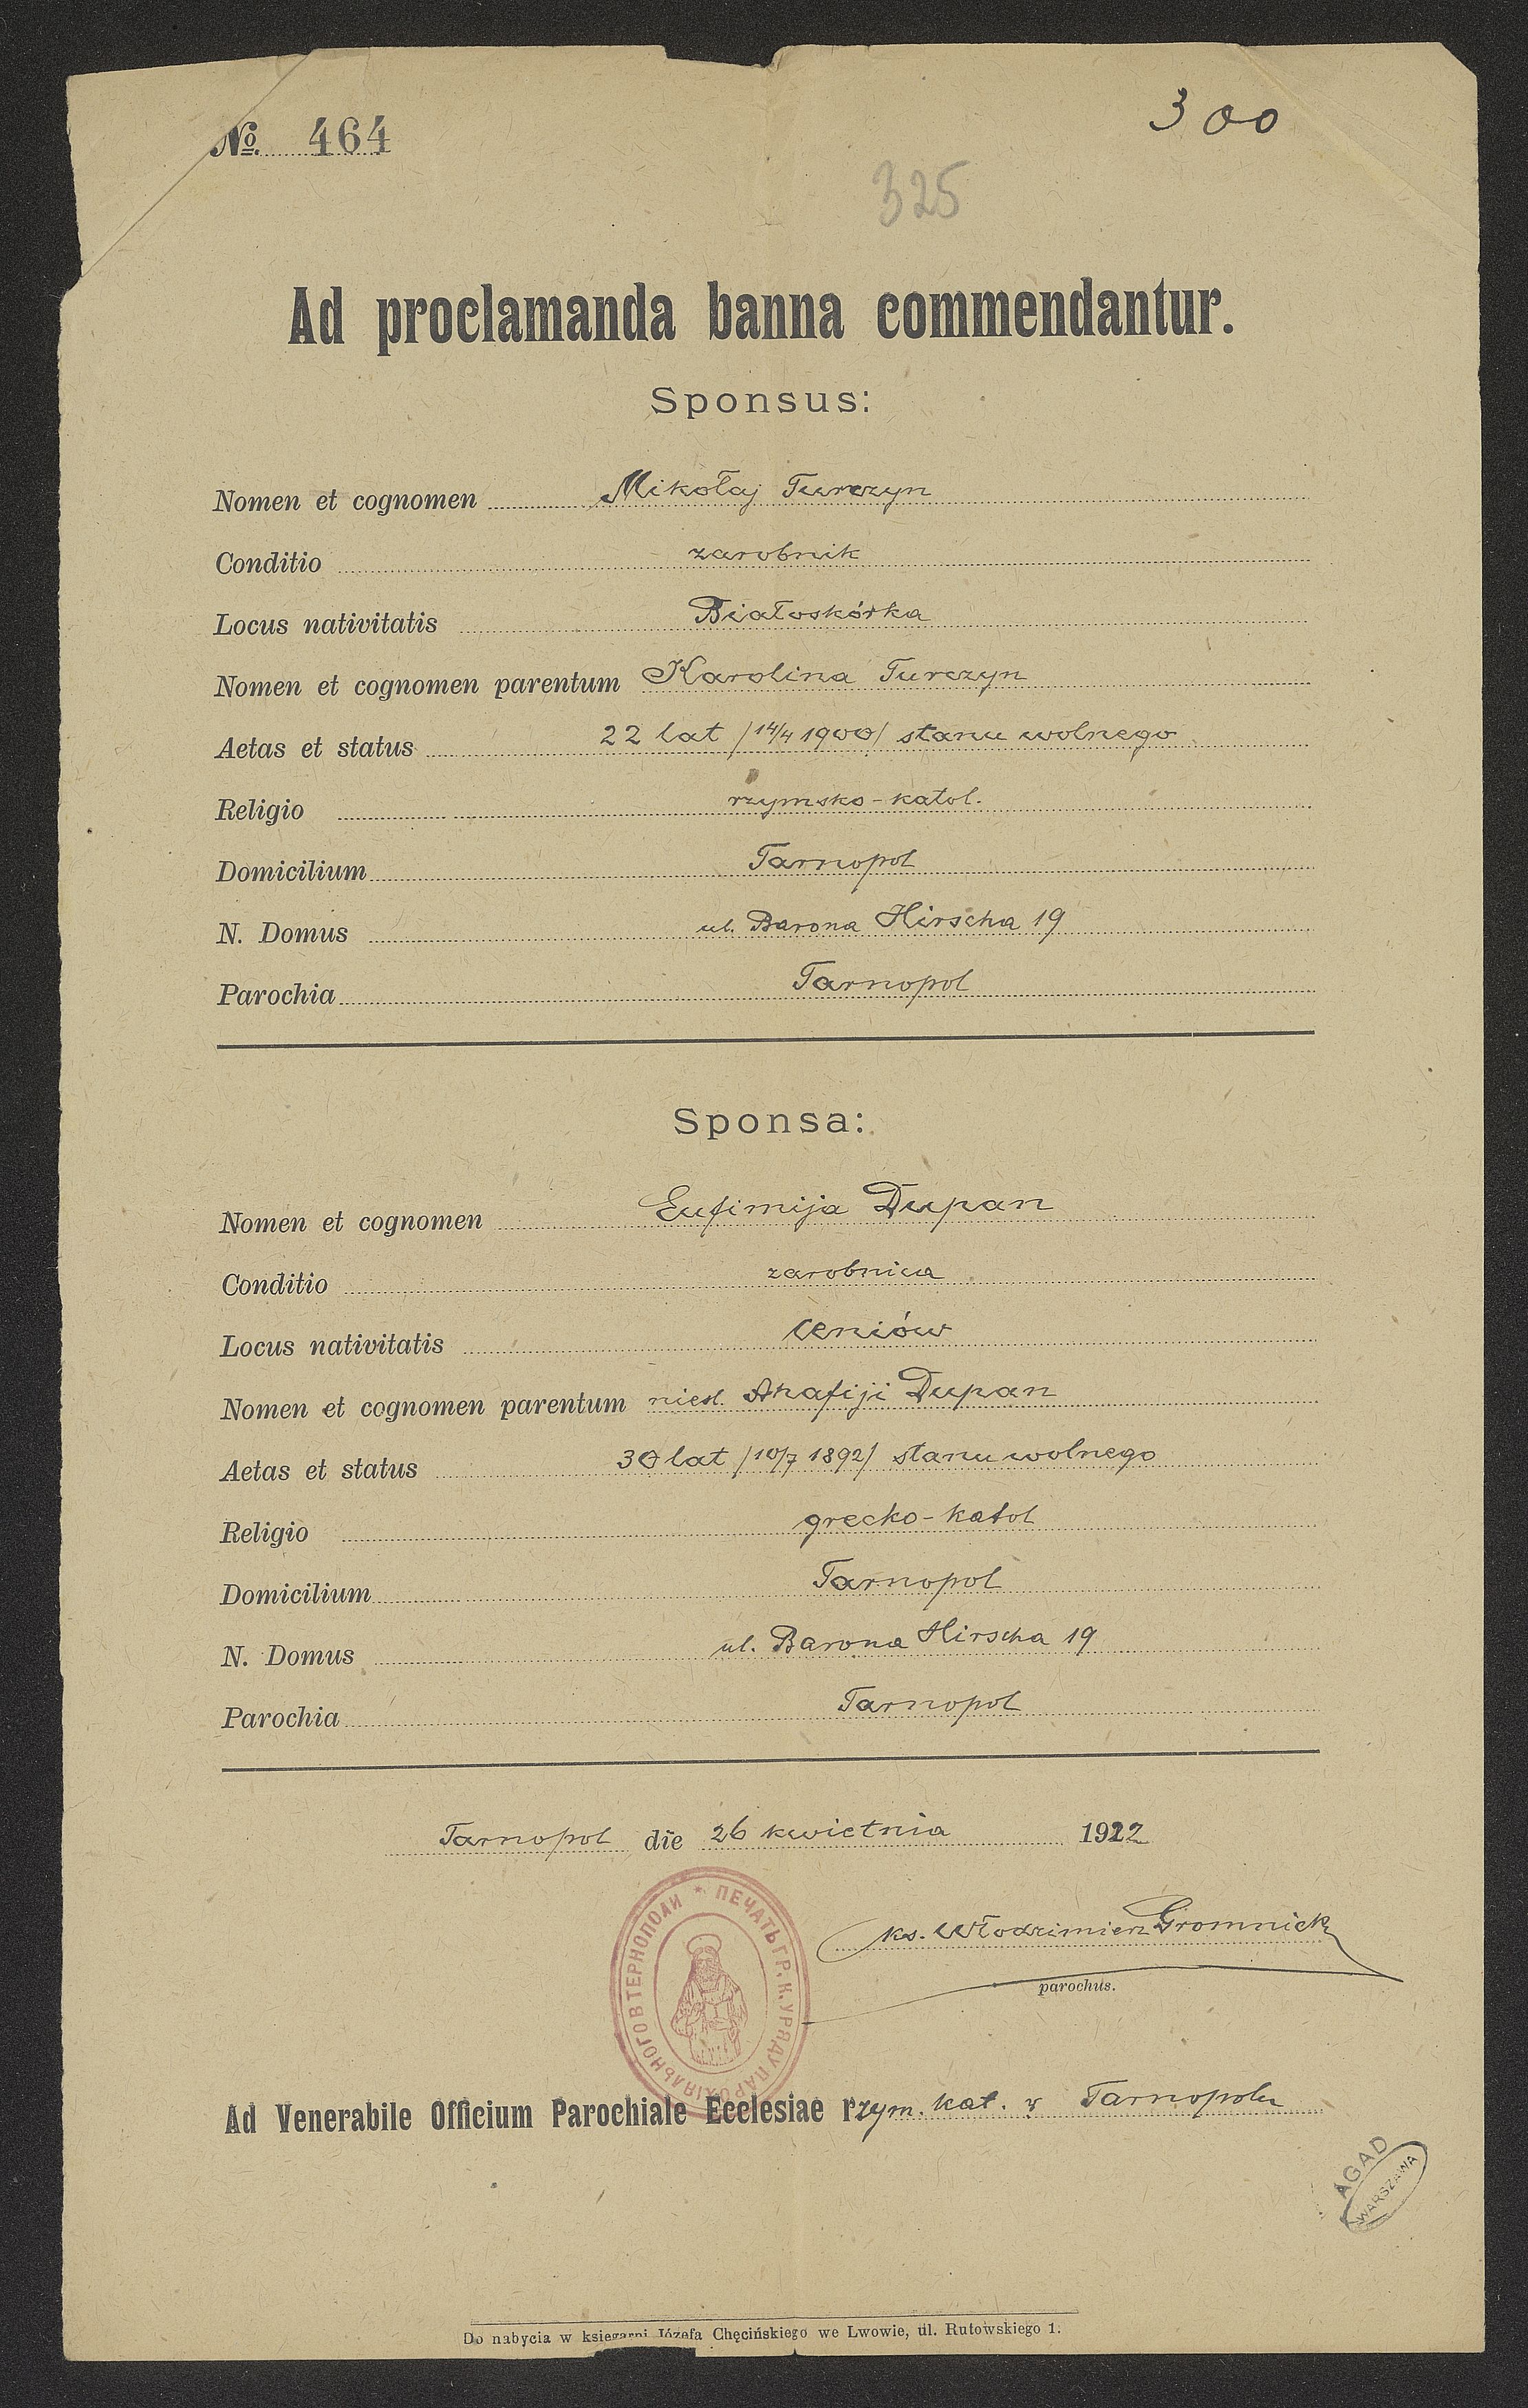 № 464
300
325
Ad proclamanda banna commendantur.
Sponsus:
Nomen et cognomen Mikołaj Turczyn
Conditio zarobnik
Locus nativitatis Białoskórka
Nomen et cognomen parentum Karolina Turczyn
Aetas et status 22 lat /14/4 1900/ stanu wolnego
Religio rzymsko-katol.
Domicilium Tarnopol
N. Domus ul. Barona Hirscha 19
Parochia Tarnopol
Sponsa:
Nomen et cognomen Eufimija Dupan
Conditio zarobnica
Locus nativitatis Ceniów
Nomen et cognomen parentum nieśl. Ahafiji Dupan
Aetas et status 30 lat /10/7 1892/ stanu wolnego
Religio grecko-katol
Domicilium Tarnopol
N. Domus ul. Barona Hirscha 19
Parochia Tarnopol
Tarnopol die 26 kwietnia 1922
ПЕЧАТЬ ГР. К. УРЯДУ ПАРОХІЯЛЬНОГО В ТЕРНОПОЛИ
ks. Włodzimierz Gromnicki
parochus.
Ad Venerabile Officium Parochiale Ecclesiae rzym. kat. w Tarnopolu
AGAD
WARSZAWA
Do nabycia w księgarni Józefa Chęcińskiego we Lwowie, ul. Rutowskiego 1.